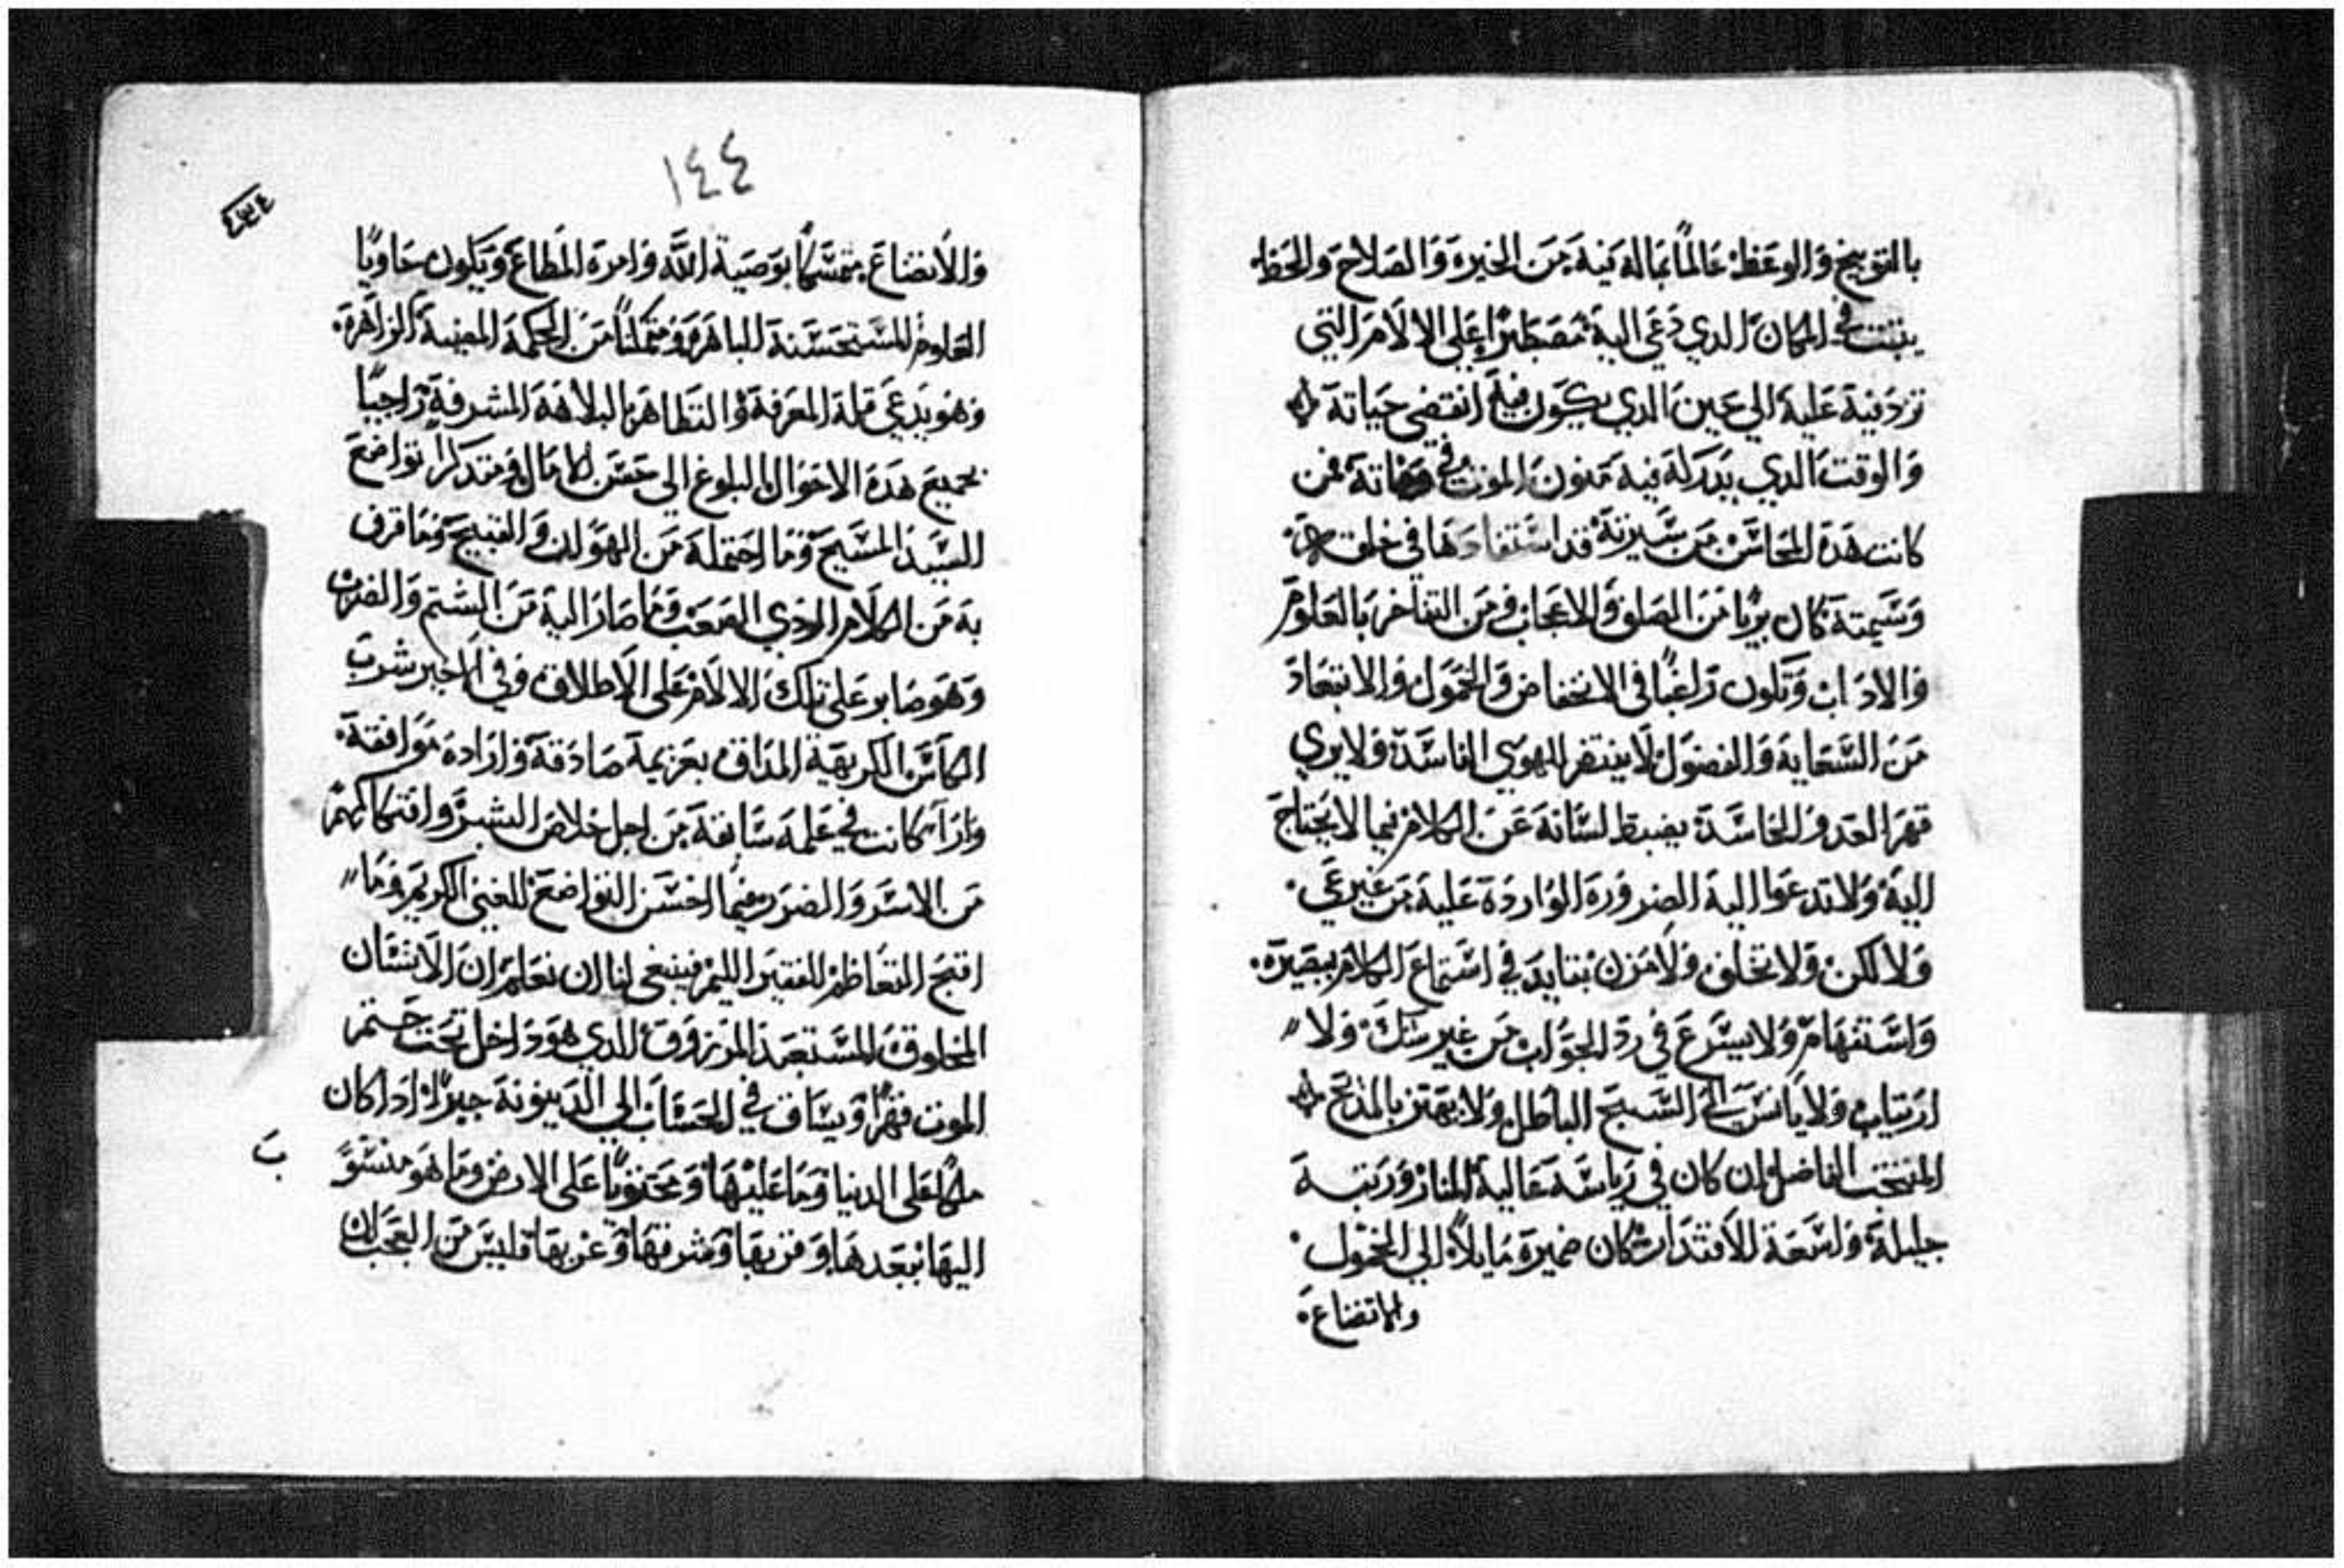 بالتوبيخ والوعظ عالمًا بما له فيه من الخيرة والصلاح والحظ
يثبت في المكان الدي دعي اليه مصطبرًا علي الالام التي
ترد فيه عليه الي حين الدي يكون فيه انقضى حياته
والوقت الدي يدركه فيه منون الموت في وفاته فمن
كانت هده المحاسن من سيرته قد استفادها في خلقه
وشيمته كان بريًا من الصلف والاعجاب ومن التفاخر بالعلوم
والاداب ويكون راغبًا في الانخفاض والخمول والابتعاد
من السعاية والفضول لا يفتقر الهوي الفاسده ولا يري
قهر العدو الحاسدة يضبط لسانه عن الكلام فيما لا يحتاج
اليه ولا تدعوا اليه الضروره الوارده عليه من غير عي
ولا لكن ولا تخلف ولا مزن بتايد في استماع الكلام ببصيره
واستفهام ولا يسرع في رد الجواب من غير شك ولا
ارتياب ولا يانس الي السبح الباطل ولا يهتز بالمدح
المنتخب الفاضل ان كان في رياسه عالية المنار ورتبه
جليلة واسعة الاقتدار كان ضميره مايلًا الي الخمول
والاتضاع
١٤٤
والاتضاع متمسكًا بوصية الله وامره المطاع ويكون حاويًا
العلوم المستحسنة الباهرة ومتمكنًا من الحكمة المضيية الزاهرة
وهو يدعي قلة المعرفة والتظاهر البلاهة المشرفة راجيًا
بجميع هده الاحوال البلوغ الي حسن الكمال ومتدكرًا تواضع
السيد المسيح وما احتمله من الهوان والقبيح وما قرف
به من الكلام الردي الصعب وما صار اليه من الشتم والضرب
وهو صابر علي تلك الالام على الاطلاق وفي الاخير شرب
الكاس الكريهة المداق بعزيمة صادقة وارادة موافقة
واراآ كانت في علمه سابقة من اجل خلاص البشر وافتكاكهم
من الاسر والضرر فيما احسن التواضع للغني الكريم وما
اقبح التعاظم للفقير اليم فينبغي لنا ان نعلم ان الانسان
المخلوق المستعبد المرزوق الدي هو داخل تحت حتم
الموت قهرًا ويساق في الحساب الي الدينونة جبرًا ادا كان
ملكًا على الدنيا وما عليها ومحتويًا على الارض وما هو منسوب
اليها ببعدها وقربها وشرقها وغربها فليس من العجب ان